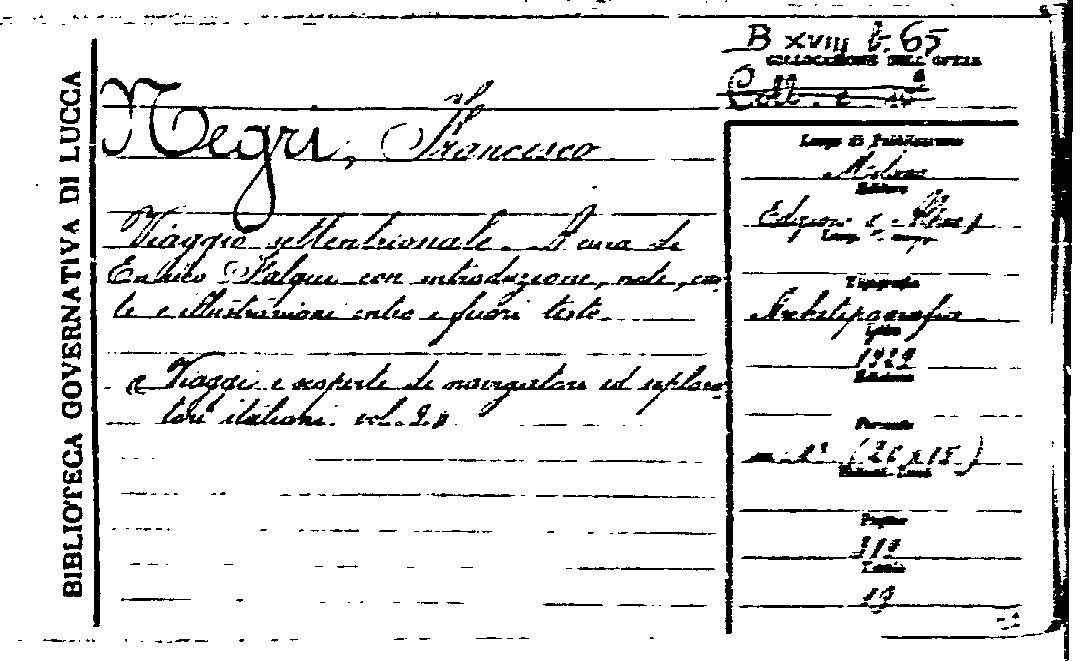 BIBLIOTECA GOVERNATIVA DI LUCCA
B XVIII b. 65
COLLOCAZIONE DELL'OPERA
Coll.
Negri, Francesco
Viaggio settentrionale. A cura di
Enrico Falqui con introduzione, note, car-
te e illustrazioni entro e fuori testo.
« Viaggi e scoperte di navigatori ed esplora-
tori italiani. vol. 2.»
Luogo di Pubblicazione
Milano
Editore
Edizioni « Alpes »
Tipografia
Archetipografia
1929
Edizione
Formato
in 8° (20x15)
Pagine
Tavole
19